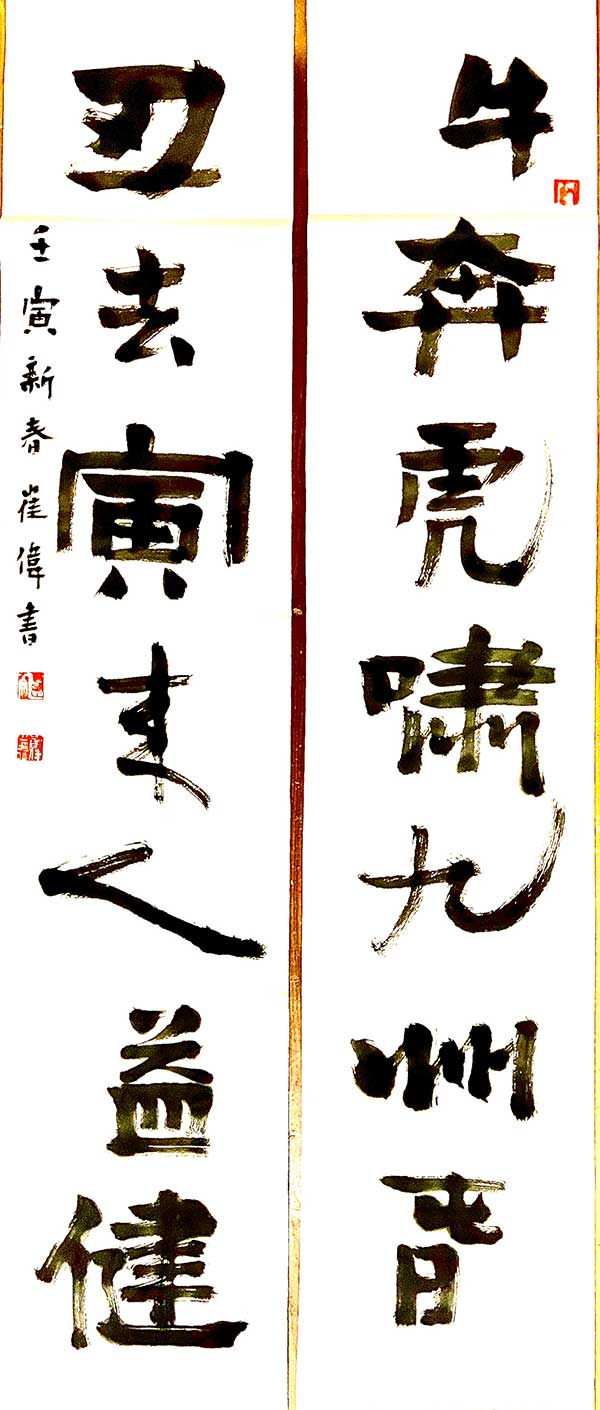 牛奔虎啸九州春
丑去寅来人益健
壬寅新春崔偉書